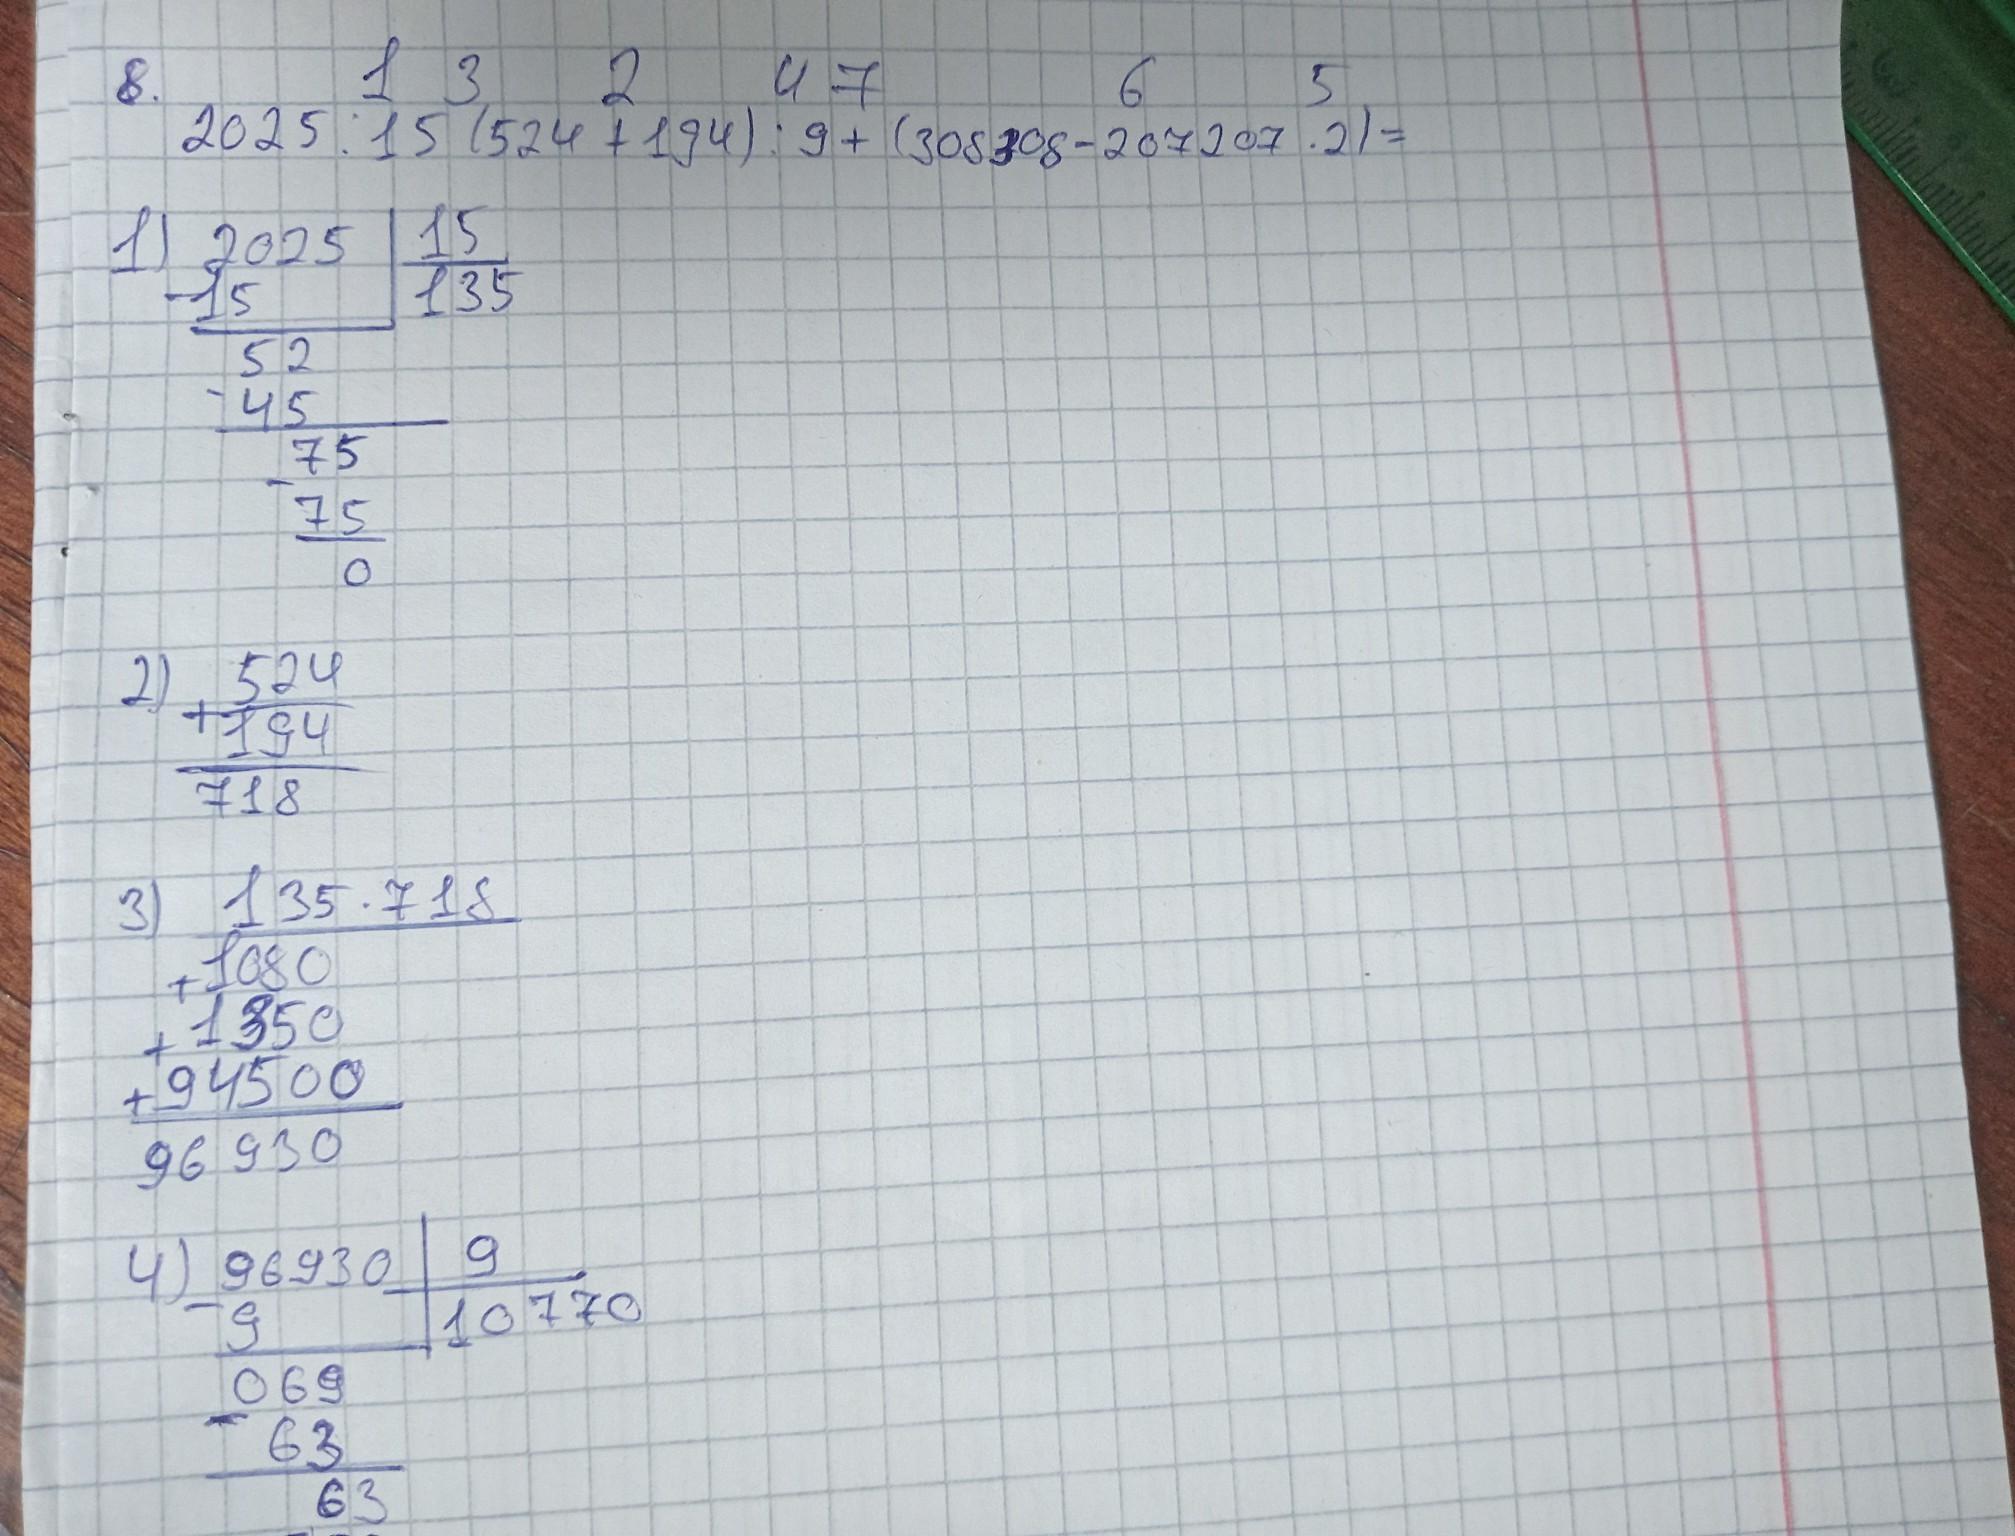 8. 1 3 2 4 7 6 5
2025 : 15 (524 + 194) : 9 + (308308 - 207207 · 2) =
1) 2025 | 15
- 15 | 135
52
- 45
75
-
75
0
2) 524
+
194
718
3) 135 · 718
1080
+
1350
+
+ 94500
96930
4) 96930 | 9
- 9 | 10770
069
-
63
63